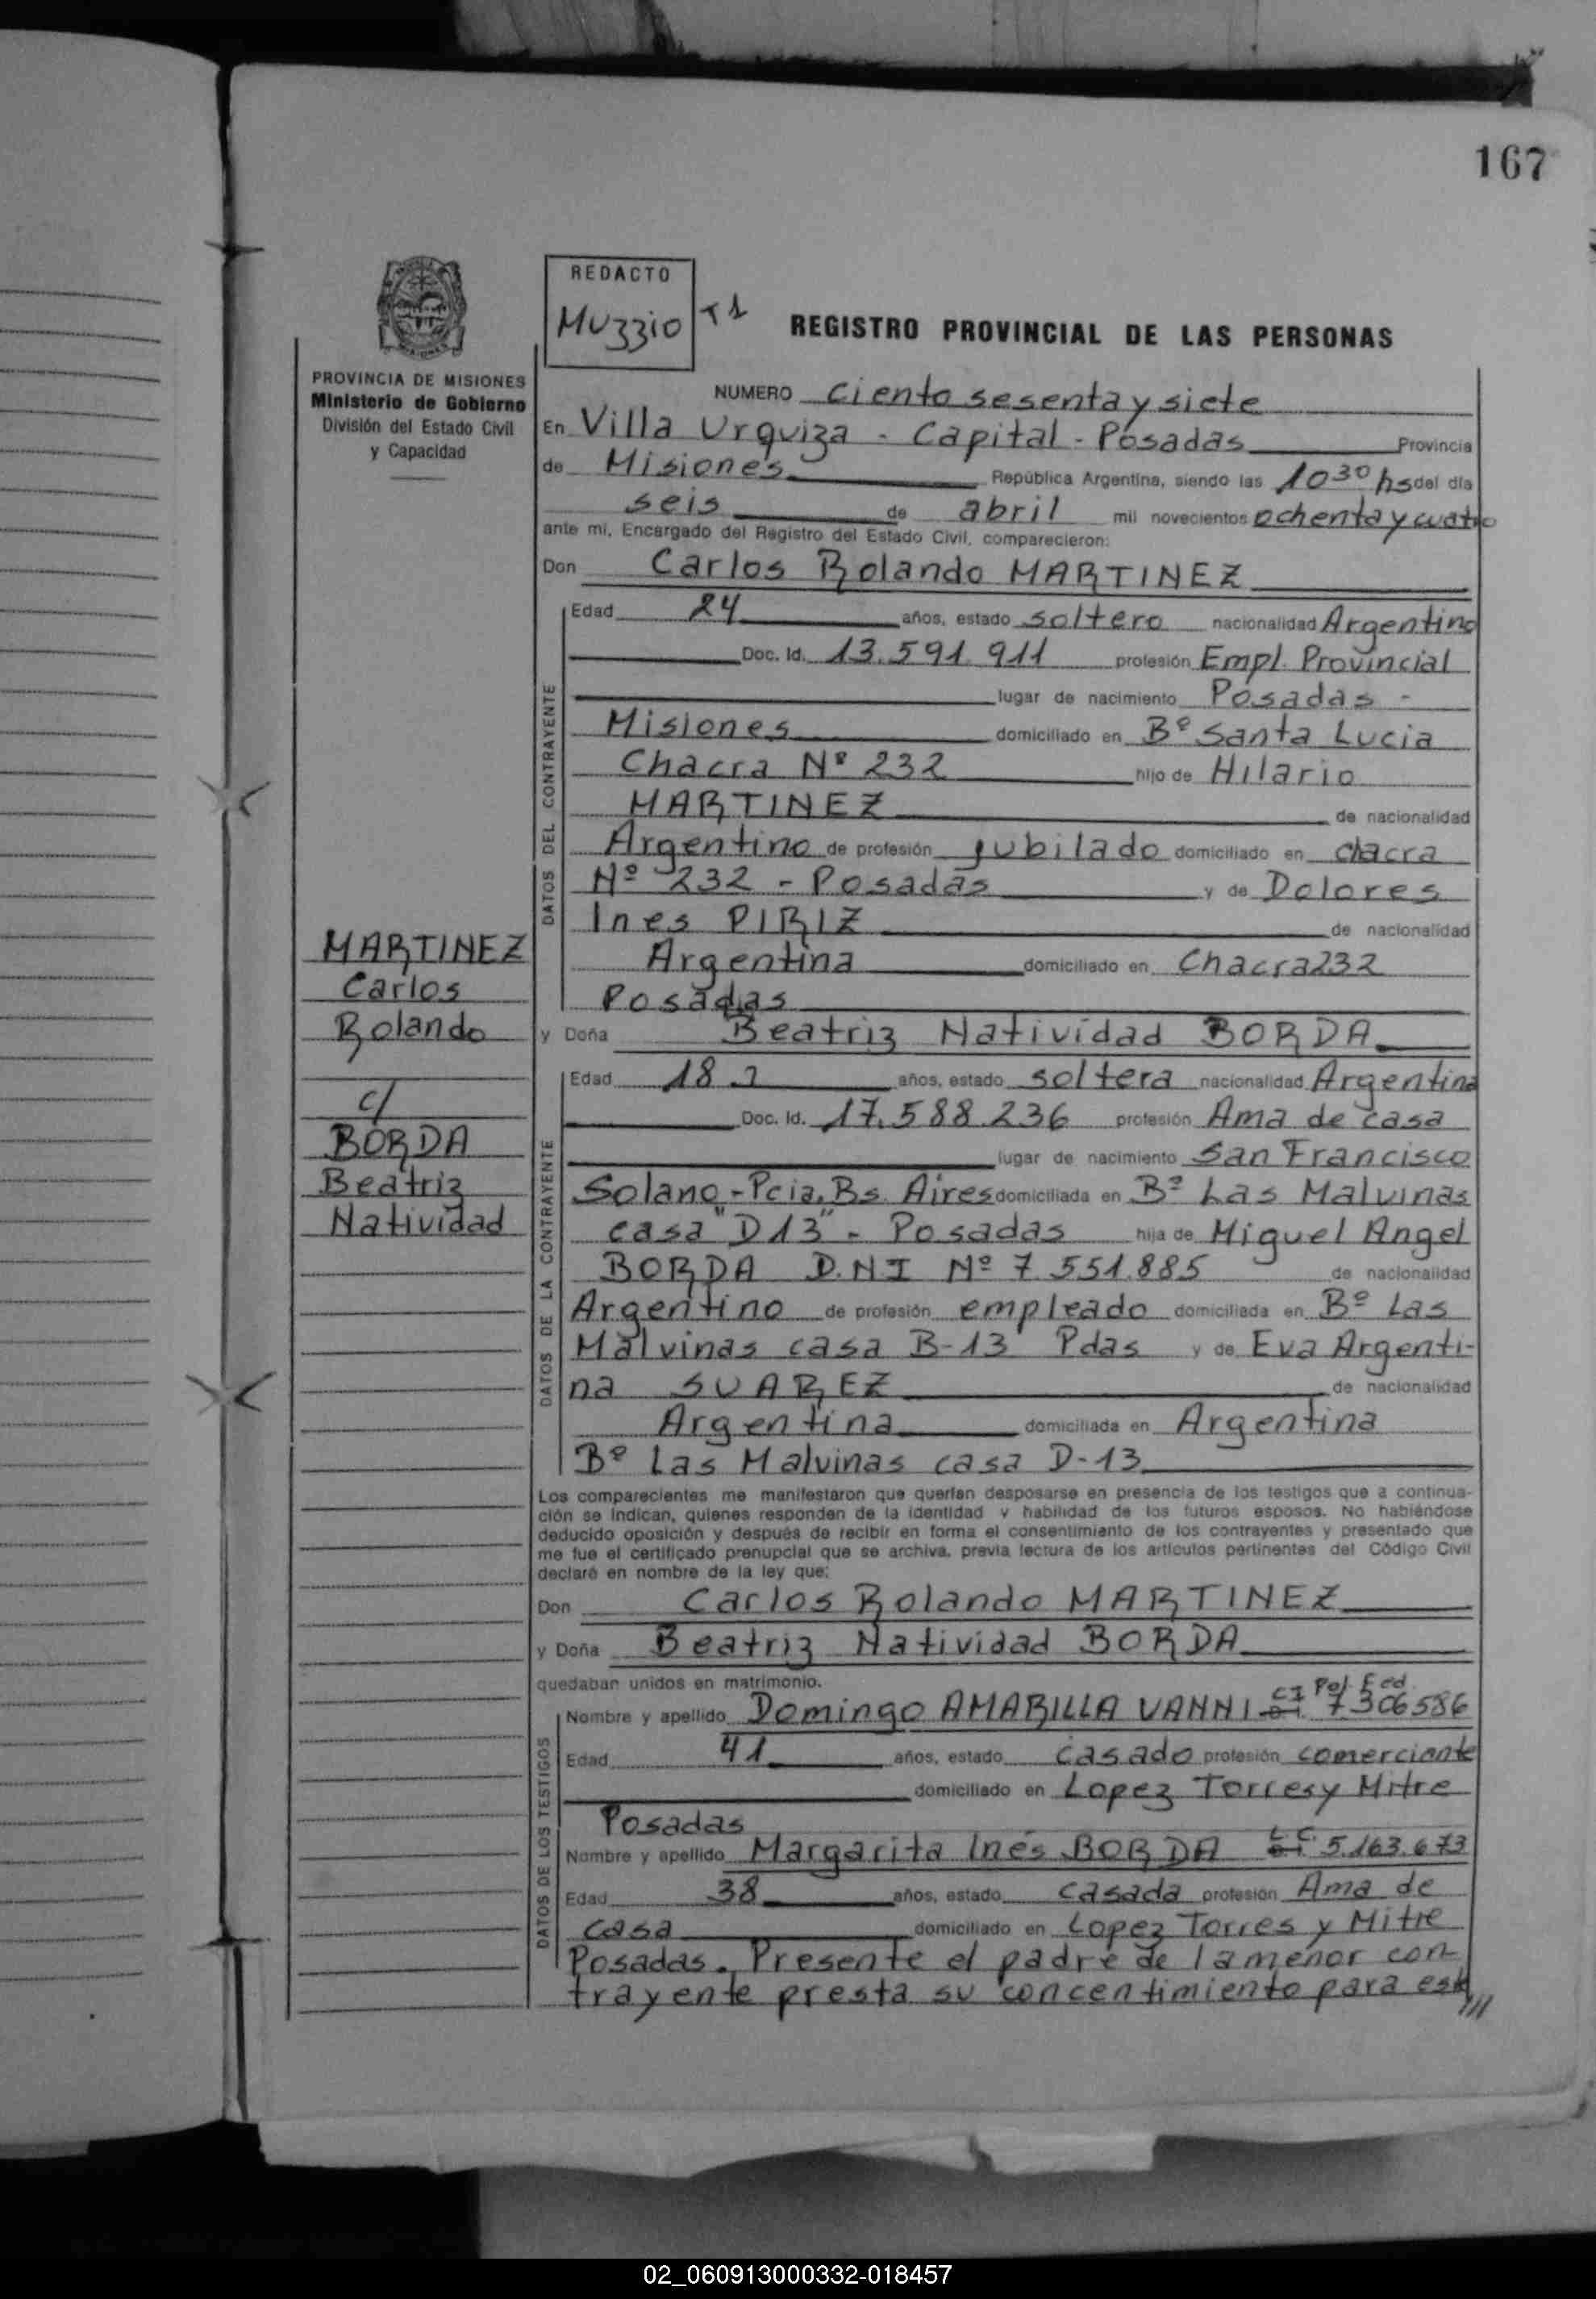 167
REDACTO
Muzzio T1
REGISTRO PROVINCIAL DE LAS PERSONAS
PROVINCIA DE MISIONES
Ministerio de Gobierno
División del Estado Civil
y Capacidad
NUMERO Ciento sesenta y siete
En Villa Urquiza - Capital - Posadas Provincia
de Misiones República Argentina, siendo las 10 30 hs del día
seis de abril mil novecientos ochenta y cuatro
ante mi, Encargado del Registro del Estado Civil, comparecieron:
Don Carlos Rolando MARTINEZ
DATOS DEL CONTRAYENTE
Edad 24 años, estado soltero nacionalidad Argentino
Doc. Id. 13.591.911 profesión Empl. Provincial
lugar de nacimiento Posadas -
Misiones domiciliado en Bº Santa Lucia
Chacra Nº 232 hijo de Hilario
MARTINEZ de nacionalidad
Argentino de profesión jubilado domiciliado en chacra
Nº 232 - Posadas y de Dolores
Ines PIRIZ de nacionalidad
Argentina domiciliado en Chacra 232
Posadas
MARTINEZ
Carlos
Rolando
c/
BORDA
Beatriz
Natividad
y Doña Beatriz Natividad BORDA
DATOS DE LA CONTRAYENTE
Edad 18 años, estado soltera nacionalidad Argentina
Doc. Id. 17.588.236 profesión Ama de casa
lugar de nacimiento San Francisco
Solano - Pcia. Bs. Aires domiciliada en Bº Las Malvinas
casa "D13" - Posadas hija de Miguel Angel
BORDA D.N.I Nº 7.551.885 de nacionalidad
Argentino de profesión empleado domiciliada en Bº Las
Malvinas casa B-13 Pdas y de Eva Argenti-
na SUAREZ de nacionalidad
Argentina domiciliada en Argentina
Bº Las Malvinas casa D-13
Los comparecientes me manifestaron que querían desposarse en presencia de los testigos que a continua-
ción se indican, quienes responden de la identidad y habilidad de los futuros esposos. No habiéndose
deducido oposición y después de recibir en forma el consentimiento de los contrayentes y presentado que
me fue el certificado prenupcial que se archiva, previa lectura de los artículos pertinentes del Código Civil
declaré en nombre de la ley que:
Don Carlos Rolando MARTINEZ
y Doña Beatriz Natividad BORDA
quedaban unidos en matrimonio.
DATOS DE LOS TESTIGOS
Nombre y apellido Domingo AMARILLA VANNI CI Pol. Fed. 7.306586
Edad 41 años, estado casado profesión comerciante
domiciliado en Lopez Torres y Mitre
Posadas
Nombre y apellido Margarita Inés BORDA L C. 5.163.673
Edad 38 años, estado casada profesión Ama de
casa domiciliado en Lopez Torres y Mitre
Posadas. Presente el padre de la menor con-
trayente presta su concentimiento para este ///
02_060913000332-018457